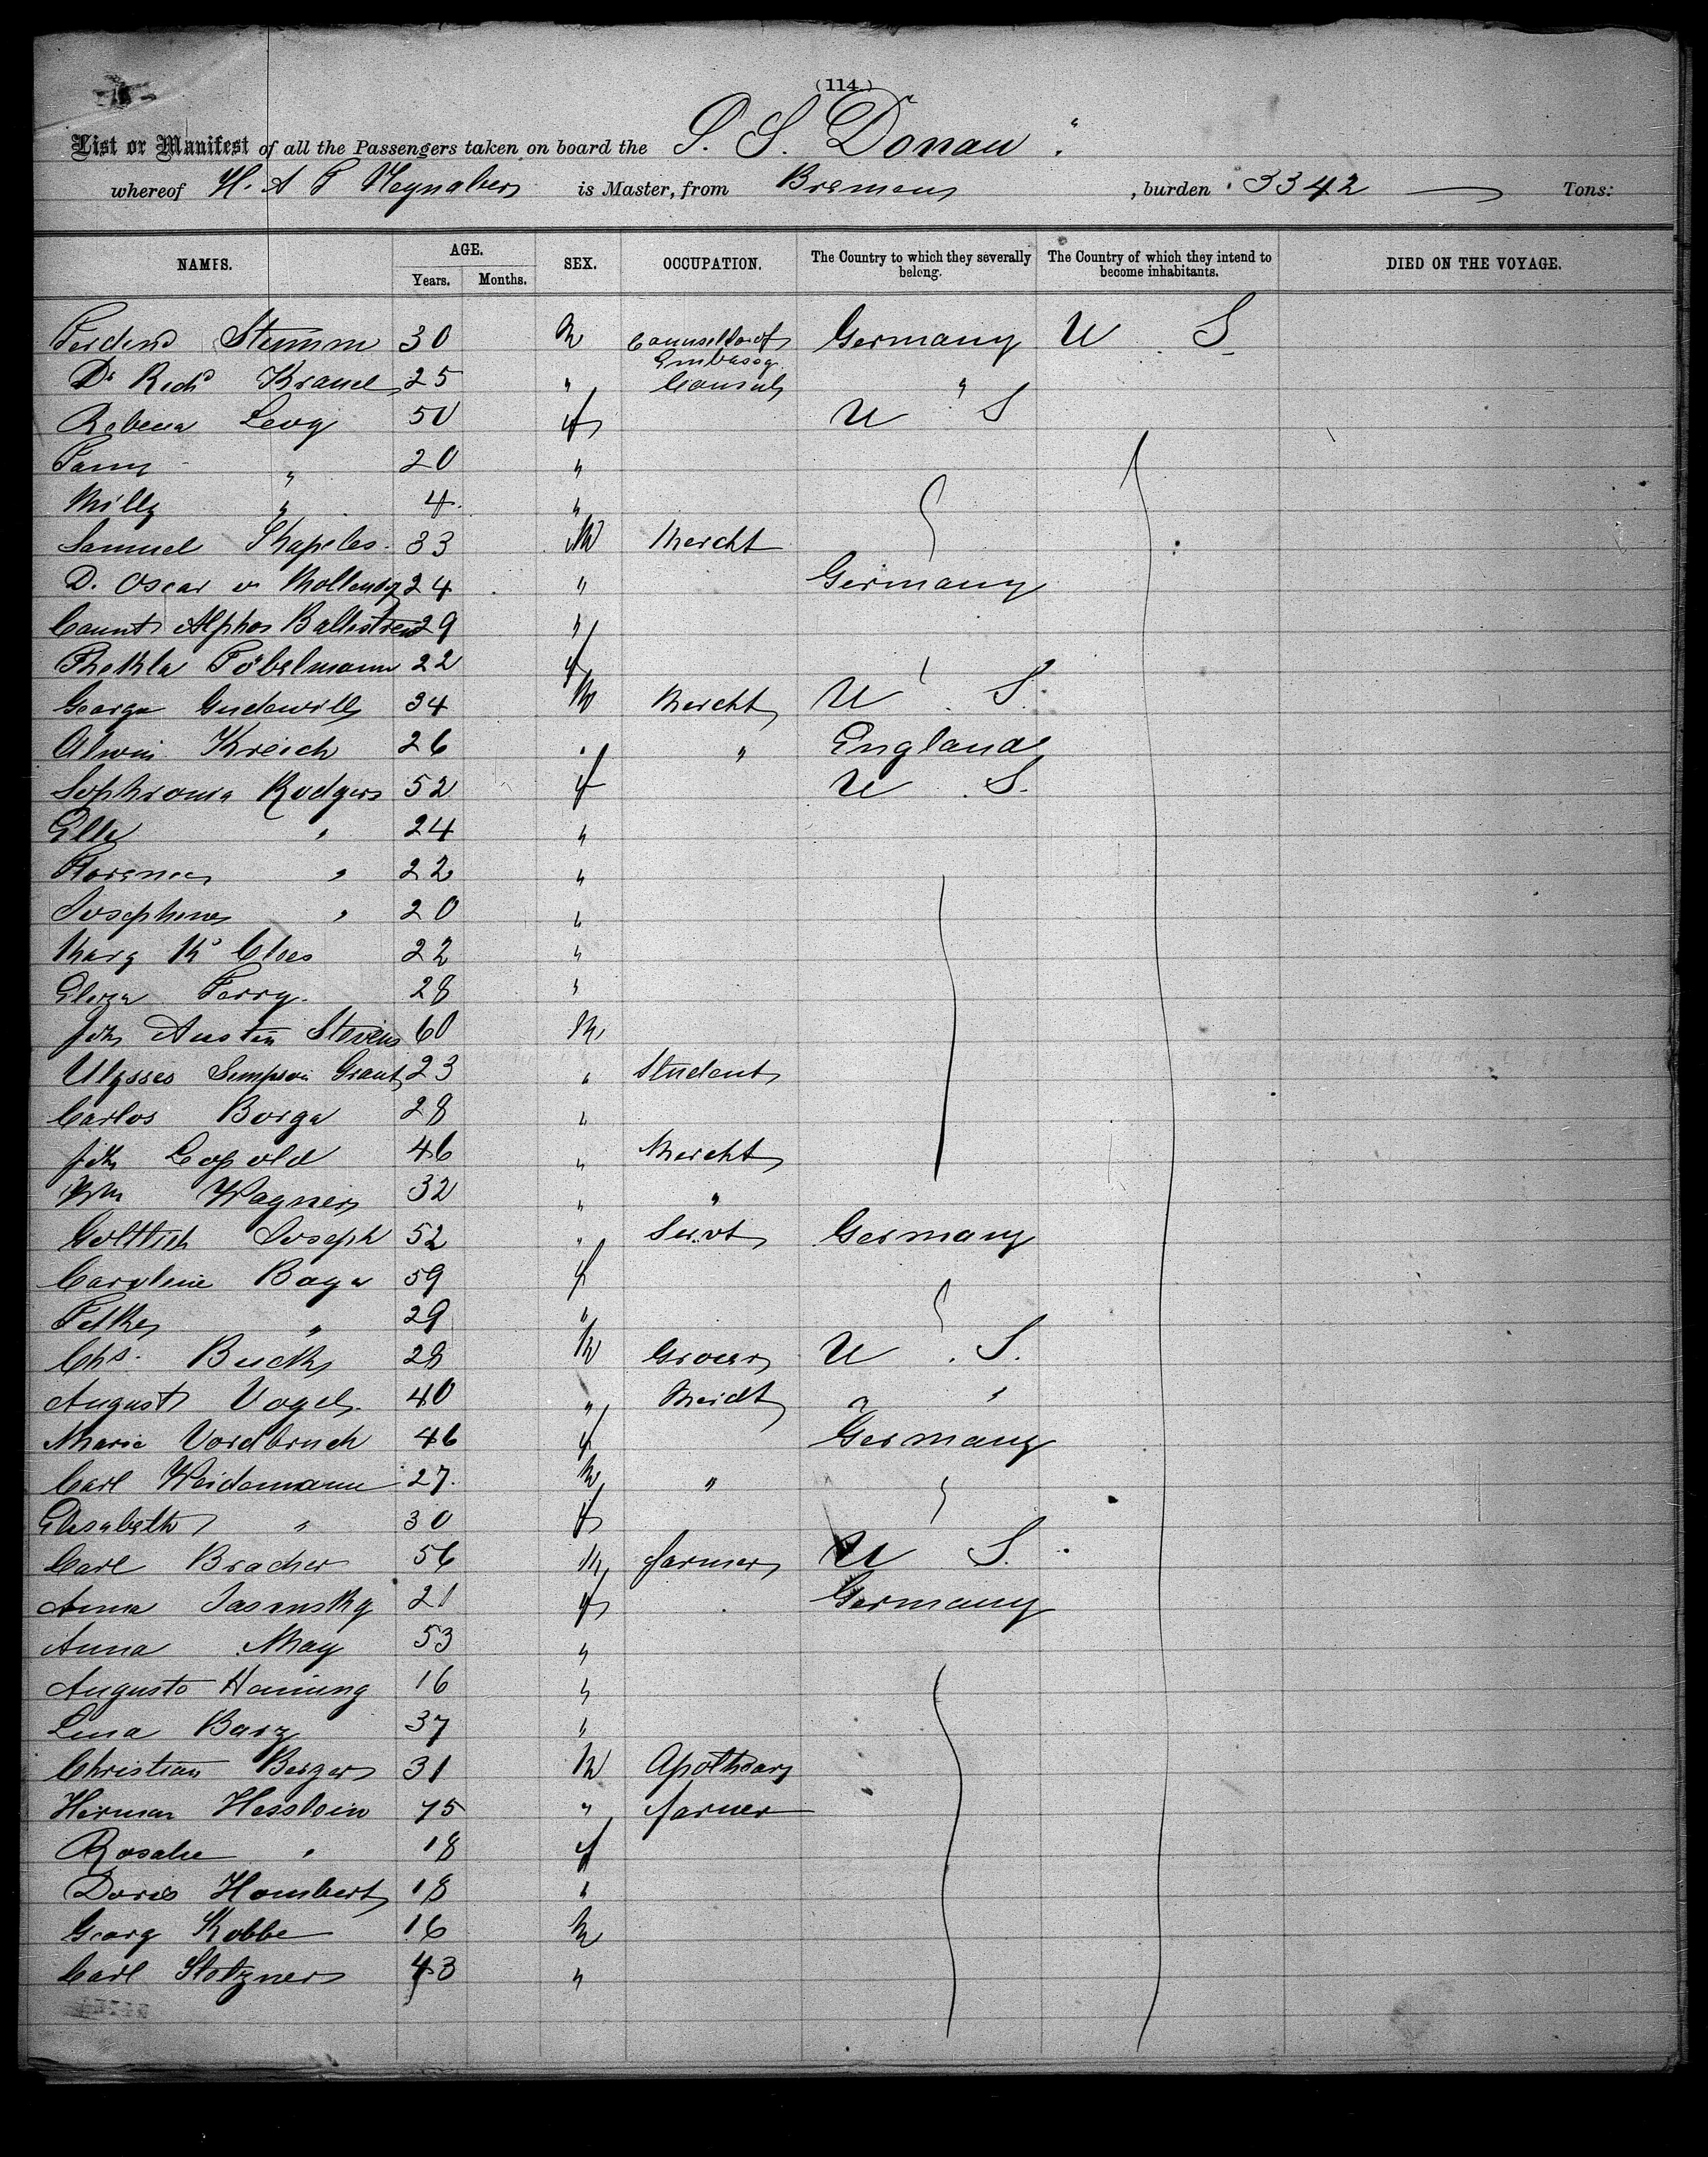 (114.)
List or Manifest of all the Passengers taken on board the S. S. Donau "
whereof H. A. F. Neynaber is Master, from Bremen, burden 3342 Tons:
NAMES. AGE. Years. Months. SEX. OCCUPATION. The Country to which they severally belong. The Country of which they intend to become inhabitants. DIED ON THE VOYAGE.
Ferdend Stumm 30 M Counsellor of Embassy Germany U S
Dr Richd Krauel 25 " Consul "
Rebecca Levy 50 f U S
Fanny " 20 "
Milly " 4 "
Samuel Kapeles 33 M Mercht
D. Oscar v 24 " Germany
Count Alphos Ballestrem 29 "
Thekla Föbelmann 22 f
George Gudewill 34 M Mercht U S.
Alwin Kreich 26 " " England
Sophronia Rodgers 52 f U S.
Ella " 24 "
Florence " 22 "
Josephine " 20 "
Mary 22 "
Eliza Terry 28 "
Jno Austin Stevens 60 M
Ulysses Simpson Grant 23 " Student
Carlos Borga 28 "
Jno Leopold 46 " Mercht
Wm Wagner 32 " "
Gottlieb Joseph 52 " Servt Germany
Caroline Baya 59 f
" 29 "
Chs. Buck 28 M Grocer U S.
August Vogel 40 " Mercht " "
Marie Vordbruch 46 f Germany
Carl Weidemann 27 M "
Elisabeth " 30 f
Carl Bracher 56 M farmer U S.
Anna Jasansky 21 f Germany
Anna May 53 "
Auguste Henning 16 "
Lina Barz 37 "
Christian Berger 31 M Apothecary
Herman Hesslein 75 " farmer
Rosalie " 18 f
Doris Hombert 18 "
Georg Kobbe 16 M
Carl Stotzner 43 "